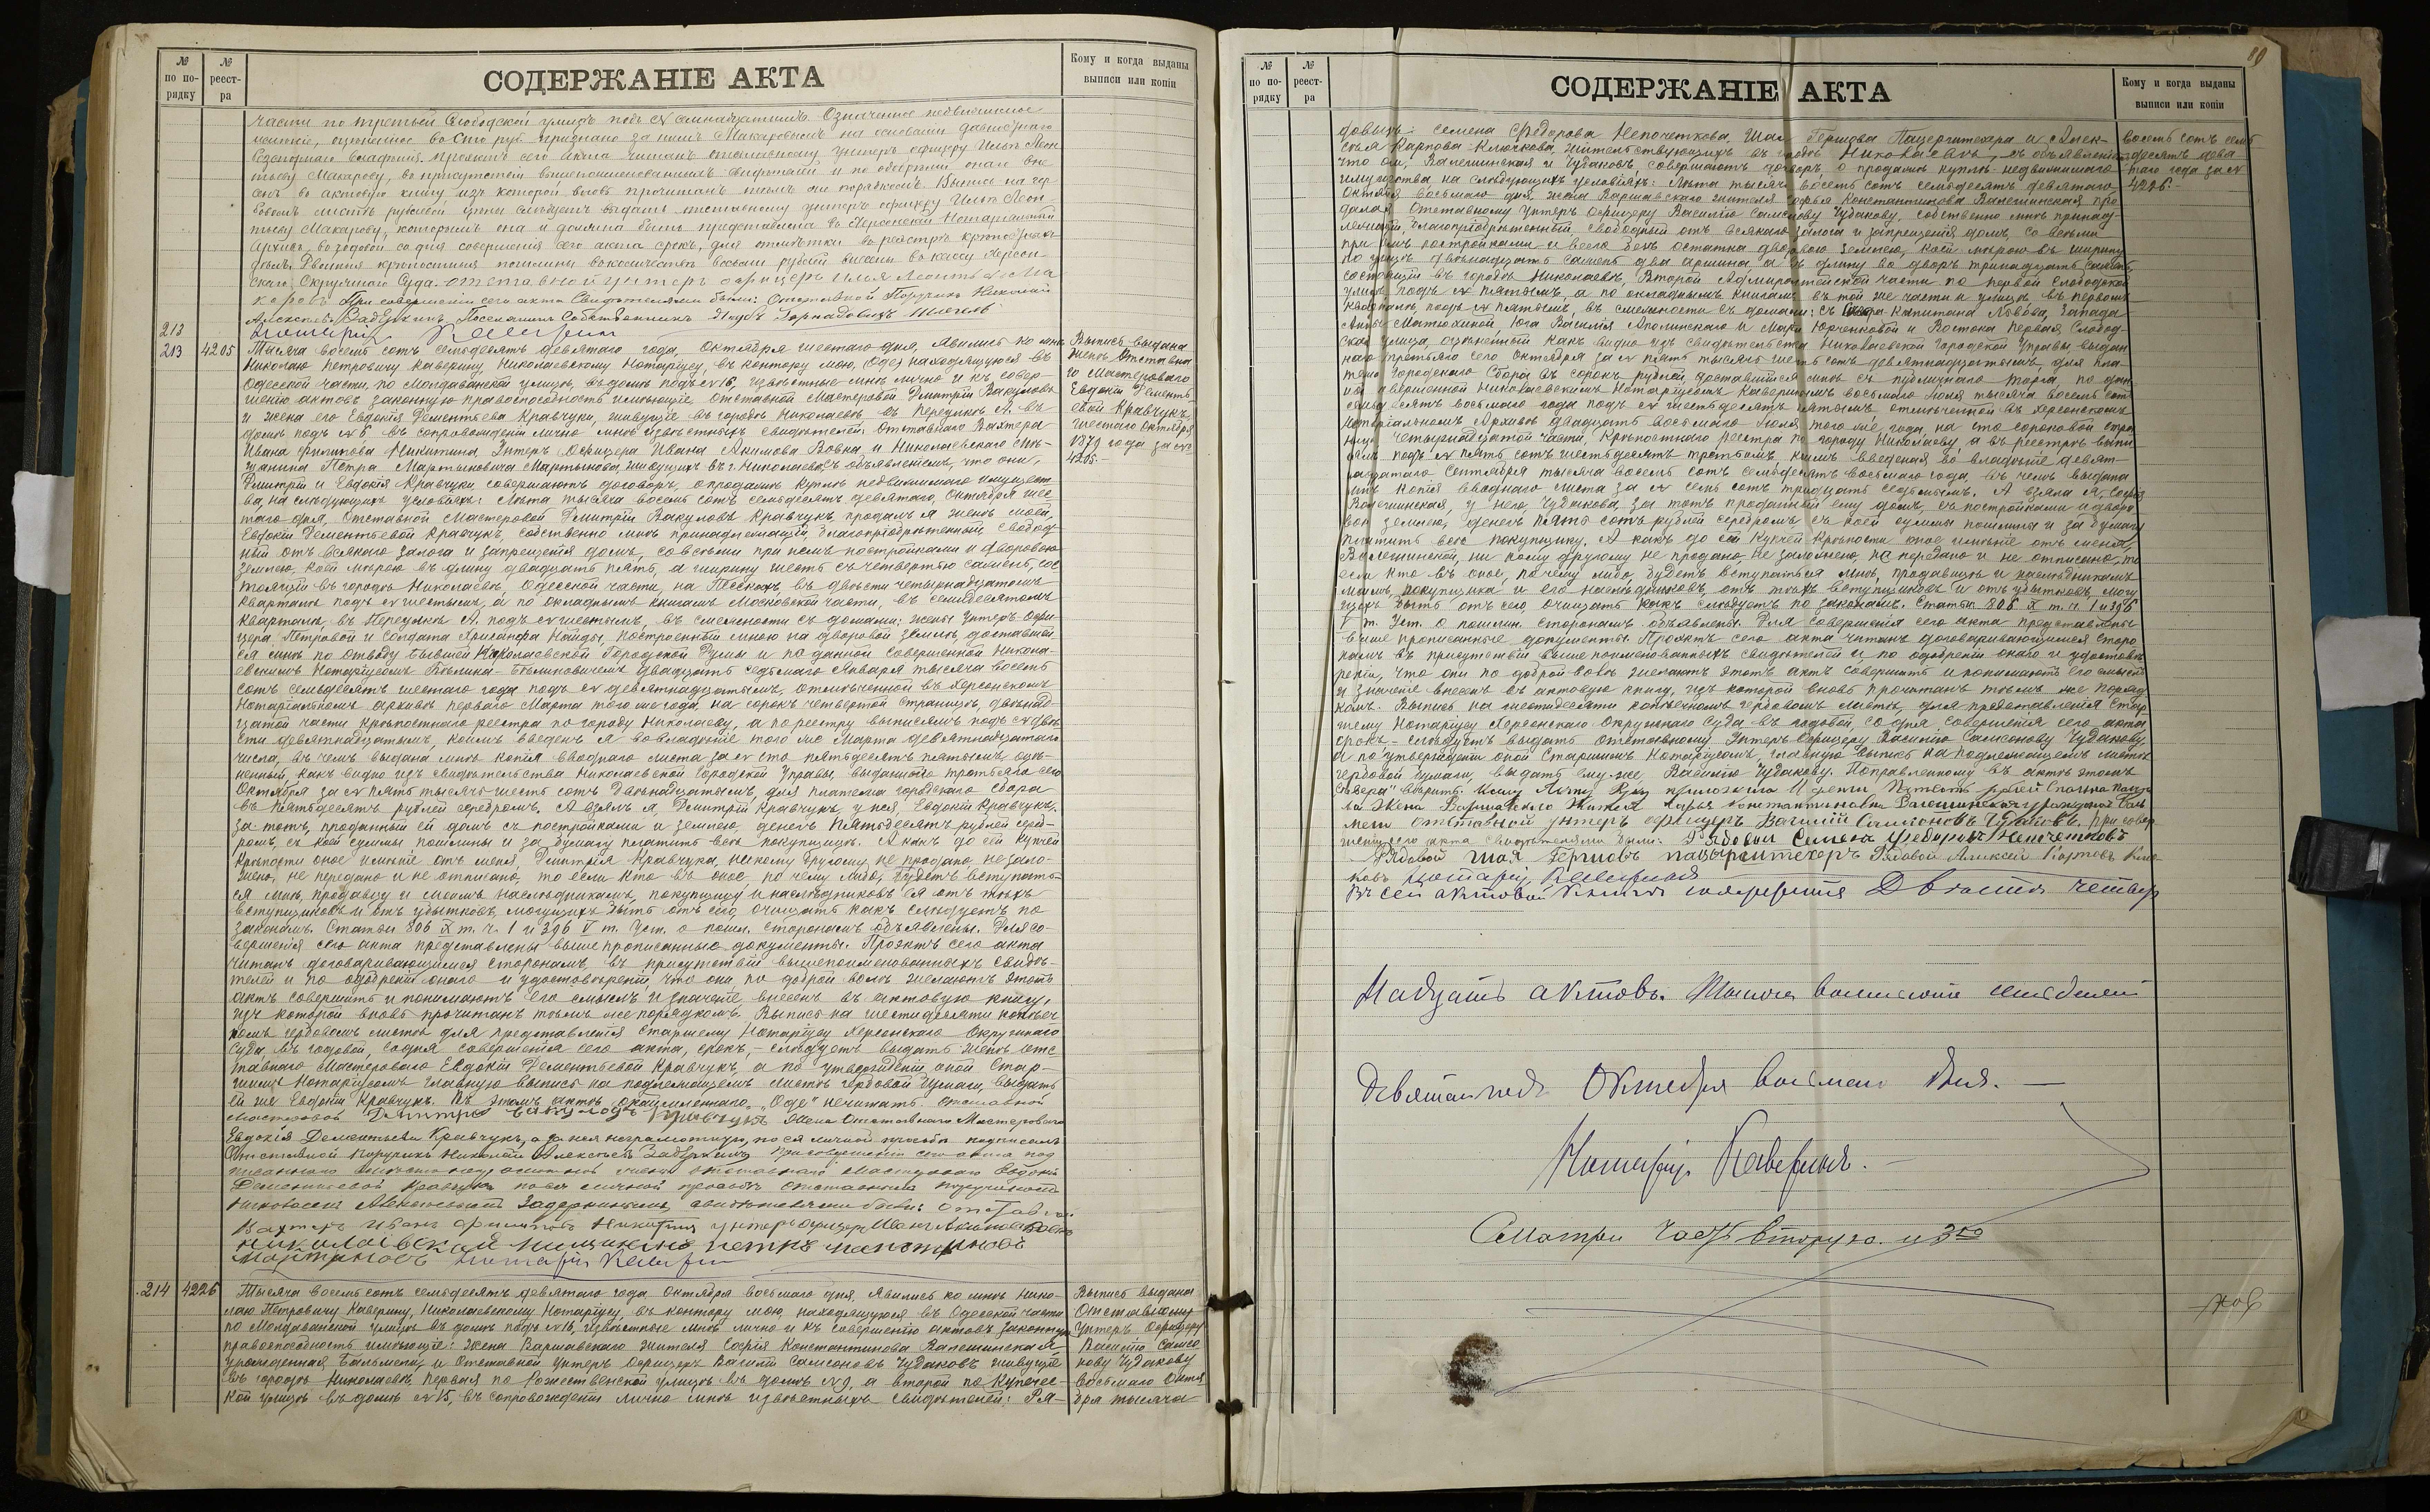 №
по по-
рядку
№
реест-
ра
СОДЕРЖАНІЕ АКТА
Кому и когда выданы
выписи или копіи
части по третьей Слободской улицѣ подъ № Означенное недвижимое
имѣніе, оцѣненное во сто руб. признано за нимъ Макаровымъ на основаніи давности
владѣнія. проэктъ сего акта читанъ отставному унтеръ офицеру Ильѣ Леон
тьеву Макарову, въ присутствіи вышепоименованныхъ свидѣтелей и по одобреніи онаго вне
сенъ въ актовую книгу изъ которой вновь прочитанъ тѣмъ же порядкомъ. Выпись на гер
бовомъ листѣ рублевой цѣны слѣдуетъ выдать отставному унтеръ офицеру Ильѣ Леон
тьеву Макарову, которымъ она и должна быть представлена въ Херсонскій Нотаріальный
Архивъ, въ годовой со дня совершенія сего акта срокъ, для отмѣтки въ реестрѣ крѣпостныхъ
дѣлъ. крѣпостныя пошлины въ количествѣ восьми рублей внесены въ кассу Херсон
скаго Окружнаго Суда. отставной унтеръ офицеръ Илья Леонтьевъ Ма
каровъ При совершеніи сего акта Свидѣтелями были: Отставной Поручикъ Николай
Алексѣевъ Задеркинъ, Поселянинъ Собственникъ
213
Нотаріусъ Каверинъ
213
4205
Тысяча восемь сотъ семьдесятъ девятаго года, Октября шестаго дня, явились ко мнѣ
Николаю Петровичу Каверину, Николаевскому Нотаріусу, въ контору мою, (Оде) находящуюся въ
Одесской части, по Молдаванской улицѣ, въ домѣ подъ № 16, извѣстные мнѣ лично и къ совер-
шенію актовъ законную правоспособность имѣющіе: Отставной Мастеровой Дмитрій Вакуловъ
и жена его Евдокія Дементьева Кравчуки, живущіе въ городѣ Николаевѣ въ Переулкѣ А. въ
домѣ подъ № 6 въ сопровожденіи лично мнѣ извѣстныхъ свидѣтелей: Отставнаго Вахтера
Ивана Филипова Никитина Унтеръ Офицера Ивана Акимова Вовка, и Николаевскаго Мѣ-
щанина Петра Мартыновича Мартынова, живущихъ въ г. Николаевѣ, съ объявленіемъ, что они,
Дмитрій и Евдокія Кравчуки, совершаютъ договоръ, о продажѣ куплѣ недвижимаго имущест
ва, на слѣдующихъ условіяхъ: Лѣта тысяча восемь сотъ семьдесятъ девятаго, Октября шес
таго дня, Отставной Мастеровой Дмитрій Вакуловъ Кравчукъ, продалъ я женѣ моей,
Евдокіи Дементьевой Кравчукъ, собственно мнѣ принадлежащій, благопріобрѣтенный, свобод-
ный отъ всякаго залога и запрещенія домъ, со всѣми при немъ постройками и дворовою
землею, коей мѣрою въ длину двадцать пять, а ширину шесть съ четвертью саженъ, сос
тоящій въ городѣ Николаевѣ, Одесской части, на Пескахъ, въ двѣсти четырнадцатомъ
кварталѣ подъ № шестымъ, а по окладнымъ книгамъ Московской части, въ семидесятомъ
кварталѣ, въ Переулкѣ А. подъ № шестымъ, въ смежности съ домами: жены Унтеръ Офи
цера Петровой и Солдата Хрисанфа Найды, построенный мною на дворовой землѣ, доставшей
ся мнѣ по отводу бывшей Николаевской Городской Думы и по данной совершенной Никола-
евскимъ Нотаріусомъ двадцать седьмаго Января тысяча восемь
сотъ семьдесятъ шестаго года подъ № девятнадцатымъ, отмѣченной въ Херсонскомъ
Нотаріальномъ Архивѣ перваго Марта того же года, на сорокъ четвертой страницѣ, двѣнад-
цатой части крѣпостнаго реестра по городу Николаеву, а по реестру выписямъ подъ № двѣ-
сти девятнадцатымъ, коимъ введенъ я во владѣніе того же Марта девятнадцатаго
числа, въ чемъ выдана мнѣ копія вводнаго листа за № сто пятьдесятъ пятымъ, оцѣ-
ненный, какъ видно изъ свидѣтельства Николаевской Городской Управы, выданнаго третьяго сего
Октября за № пять тысячъ шесть сотъ двѣнадцатымъ, для платежа городскаго сбора
въ пятьдесятъ рублей серебромъ. А взялъ я, Дмитрій Кравчукъ, у нея, Евдокіи Кравчукъ,
за тотъ, проданный ей домъ съ постройками и землею, денегъ пятьдесятъ рублей сереб-
ромъ, съ коей суммы пошлины и за бумагу платить весь покупщику. А какъ до сей купчей
крѣпости оное имѣніе отъ меня, Дмитрія Кравчука, никому другому не продано, не зало-
жено, не передано и не отписано, то если кто въ оное, по чему либо, будетъ вступать-
ся мнѣ, продавцу и моимъ наслѣдникамъ, покупщицу и наслѣдниковъ ея отъ тѣхъ
вступщиковъ и отъ убытковъ, могущихъ быть отъ сего, очищать какъ слѣдуетъ по
законамъ. Статьи 806 X т. ч. 1 и 396 V т. Уст. о пошл. сторонамъ объявлены. Для со-
вершенія сего акта представлены выше прописанные документы. Проэктъ сего акта
читанъ договаривающимся сторонамъ, въ присутствіи вышепоименованныхъ свидѣ-
телей и по одобреніи онаго и удостовѣреніи, что они, по доброй волѣ желаютъ этотъ
актъ совершить и понимаютъ его смыслъ и значеніе, внесенъ въ актовую книгу,
изъ которой вновь прочитанъ тѣмъ же порядкомъ. Выпись на шестидесяти копѣеч
номъ гербовомъ листѣ для представленія Старшему Нотаріусу Херсонскаго Окружнаго
Суда, въ годовой, со дня совершенія сего акта, срокъ,- слѣдуетъ выдать женѣ отс
тавнаго Мастероваго Евдокіи Дементьевой Кравчукъ, а по утвержденіи оной Стар-
шимъ Нотаріусомъ главную выпись на подлежащемъ листѣ гербовой бумаги, выдать
ей же Евдокіи Кравчукъ. Въ этомъ актѣ окаймленнаго „Оде" не читать. Отставной
Мастеровой Дмитрій Вакуловъ Кравчукъ Жена Отставнаго Мастероваго
Евдокія Дементьева Кравчукъ, а за нея неграмотную, по ея личной просьбѣ подписалъ
Отставной Поручикъ Николай Алексѣевъ Задеркинъ При совершеніи сего акта под
писаннаго жены отставнаго Мастероваго Евдокіи
Дементьевой Кравчукъ по ея личной просьбѣ Отставнымъ Поручикомъ
Николаемъ Алексѣевымъ Задеркинымъ, свидѣтелями были: Отставной
Вахтеръ Иванъ Филиповъ Никитинъ унтеръ офицеръ Иванъ Акимовъ Вовкъ
Николаевской мещанинъ Петръ Мартыновъ
Мартыновъ Нотаріусъ Каверинъ
Выпись выдана
Женѣ Отставна
го Мастероваго
Евдокіи Демент-
евой Кравчукъ,
Шестаго Октября
1879 года за №
4205.-
214
4226
Тысяча восемь сотъ семьдесятъ девятаго года, Октября восьмаго дня, явились ко мнѣ Нико-
лаю Петровичу Каверину, Николаевскому Нотаріусу, въ контору мою, находящуюся въ Одесской части
по Молдаванской улицѣ въ домѣ подъ № 16, извѣстные мнѣ лично и къ совершенію актовъ законную
правоспособность имѣющіе: Жена Варшавскаго жителя Софія Константинова Валешинская
урожденная Бальмени, и Отставной Унтеръ Офицеръ Василій Самсоновъ Чудаковъ живущіе
въ городѣ Николаевѣ, первая по Рожественской улицѣ въ домѣ № 9, а второй по Купечес-
кой улицѣ въ домѣ № 15, въ сопровожденіи лично мнѣ извѣстныхъ свидѣтелей: Ря-
Выпись выдана
Отставному
Унтеръ Офицеру
Василію Самсо
нову Чудакову
восьмаго Октя
бря тысяча
80
№
по по-
рядку
№
реест-
ра
СОДЕРЖАНІЕ АКТА
Кому и когда выданы
выписи или копіи
довыхъ: Семена Федорова Непочеткова, Шаи Гершова Пацернтехера и Алек-
сѣя Карпова Клюкова, жительствующихъ въ городѣ Николаевѣ, съ объявленіемъ
что они, Валешинская и Чудаковъ, совершаютъ договоръ, о продажѣ куплѣ недвижимаго
имущества на слѣдующихъ условіяхъ: Лѣта тысяча восемь сотъ семьдесятъ девятаго,
Октября восьмаго дня, жена Варшавскаго жителя Софья Константинова Валешинская про
дала я Отставному Унтеръ Офицеру Василію Самсонову Чудакову, собственно мнѣ принад-
лежащій, благопріобрѣтенный, свободный отъ всякаго залога и запрещенія домъ, со всѣми
при немъ постройками и всего безъ остатка дворовою землею, коей мѣрою въ ширину
по улицѣ двѣнадцать саженъ два аршина, а въ длину во дворъ тринадцать саженъ,
состоящій въ городѣ Николаевѣ, Второй Адмиралтейской части по первой Слободской
улицѣ подъ № пятымъ, а по окладнымъ книгамъ въ той же части и улицѣ въ первомъ
кварталѣ, подъ № пятымъ, въ смежности съ домами: съ Сѣвера Капитана Львова, Запада
Анны Матюхиной, Юга Василія Аполинскаго и Маріи Юрченковой и Востока Первая Слобод-
ская улица, оцѣненный какъ видно изъ свидѣтельства Николаевской Городской Управы, выдан
наго третьяго сего Октября за № пять тысячъ шесть сотъ девятнадцатымъ, для пла
тежа Городскаго Сбора въ сорокъ рублей, доставшійся мнѣ съ публичнаго торга, по дан
ной совершенной Николаевскимъ Нотаріусомъ Каверинымъ восьмаго Іюля тысяча восемь сотъ
семьдесятъ восьмаго года подъ № шестьдесятъ пятымъ отмѣченной въ Херсонскомъ
Нотаріальномъ Архивѣ двадцать восьмаго Іюля того же года, на сто сороковой стра
ницѣ четырнадцатой части, Крѣпостнаго реестра по городу Николаеву, а въ реестрѣ выпи
сямъ подъ № пять сотъ шестьдесятъ третьимъ, коимъ введеная во владѣніе девят-
надцатаго Сентября тысяча восемь сотъ семьдесятъ восьмаго года, въ чемъ выдана
мнѣ копія вводнаго листа за № семь сотъ тридцать седьмымъ. А взяла я, Софія
Валешинская, у него, Чудакова, за тотъ проданный ему домъ, съ постройками и дворо
вою землею, денегъ пять сотъ рублей серебромъ, съ коей суммы пошлины и за бумагу
платить весь покупщику. А какъ до сей купчей крѣпости оное имѣніе отъ меня,
Валешинской, ни кому другому не продано, не заложено, не передано и не отписано, то
если кто въ оное, по чему либо, будетъ вступаться мнѣ, продавицѣ и наслѣдникамъ
моимъ, покупщика и его наслѣдниковъ, отъ тѣхъ вступщиковъ и отъ убытковъ, могу
щихъ быть отъ сего, очищать какъ слѣдуетъ по законамъ. Статьи 806 X т. ч. 1 и 396
V т. Уст. о пошлин. сторонамъ объявлены. Для совершенія сего акта представлены
выше прописанные документы. Проэктъ сего акта читанъ договаривающимся сторо
намъ въ присутствіи выше поименованныхъ свидѣтелей и по одобреніи онаго и удостовѣ
реніи, что они по доброй волѣ желаютъ этотъ актъ совершить и понимаютъ его смыслъ
и значеніе внесенъ въ актовую книгу, изъ которой вновь прочитанъ тѣмъ же поряд
комъ. Выпись на шестидесяти копѣечномъ гербовомъ листѣ, для представленія Стар
шему Нотаріусу Херсонскаго Окружнаго Суда въ годовой, со дня совершенія сего акта
срокъ,- слѣдуетъ выдать Отставному Унтеръ Офицеру Василію Самсонову Чудакову
а по утвержденіи оной Старшимъ Нотаріусомъ, главную выпись на подлежащемъ листѣ
гербовой бумаги, выдать ему же, Василію Чудакову. Поправленному въ актѣ этомъ
„Сѣвера" вѣрить.
Жена Варшавского Жителя Константиновна Валешинская урожденная Баль
мени отставной унтеръ офицеръ Василій Самсоновъ Чудаковъ. При совер
шеніи сего акта свидѣтелями были: Рядовой Семенъ Федоровъ Непочетковъ
Рядовой Шая Гершовъ Пацырнтехеръ Рядовой Алексей Карповъ Клю
ковъ Нотаріусъ Каверинъ
Въ сей актовой книгѣ содержится Двѣсти четыр
надцать актовъ. Тысяча восемьсотъ семьдесятъ
девятаго года Октября восьмаго дня. —
Нотаріусъ Каверинъ. —
Смотри Часть вторую. и 3ю
восемь сотъ семь
десятъ девя
таго года за №
4226.-